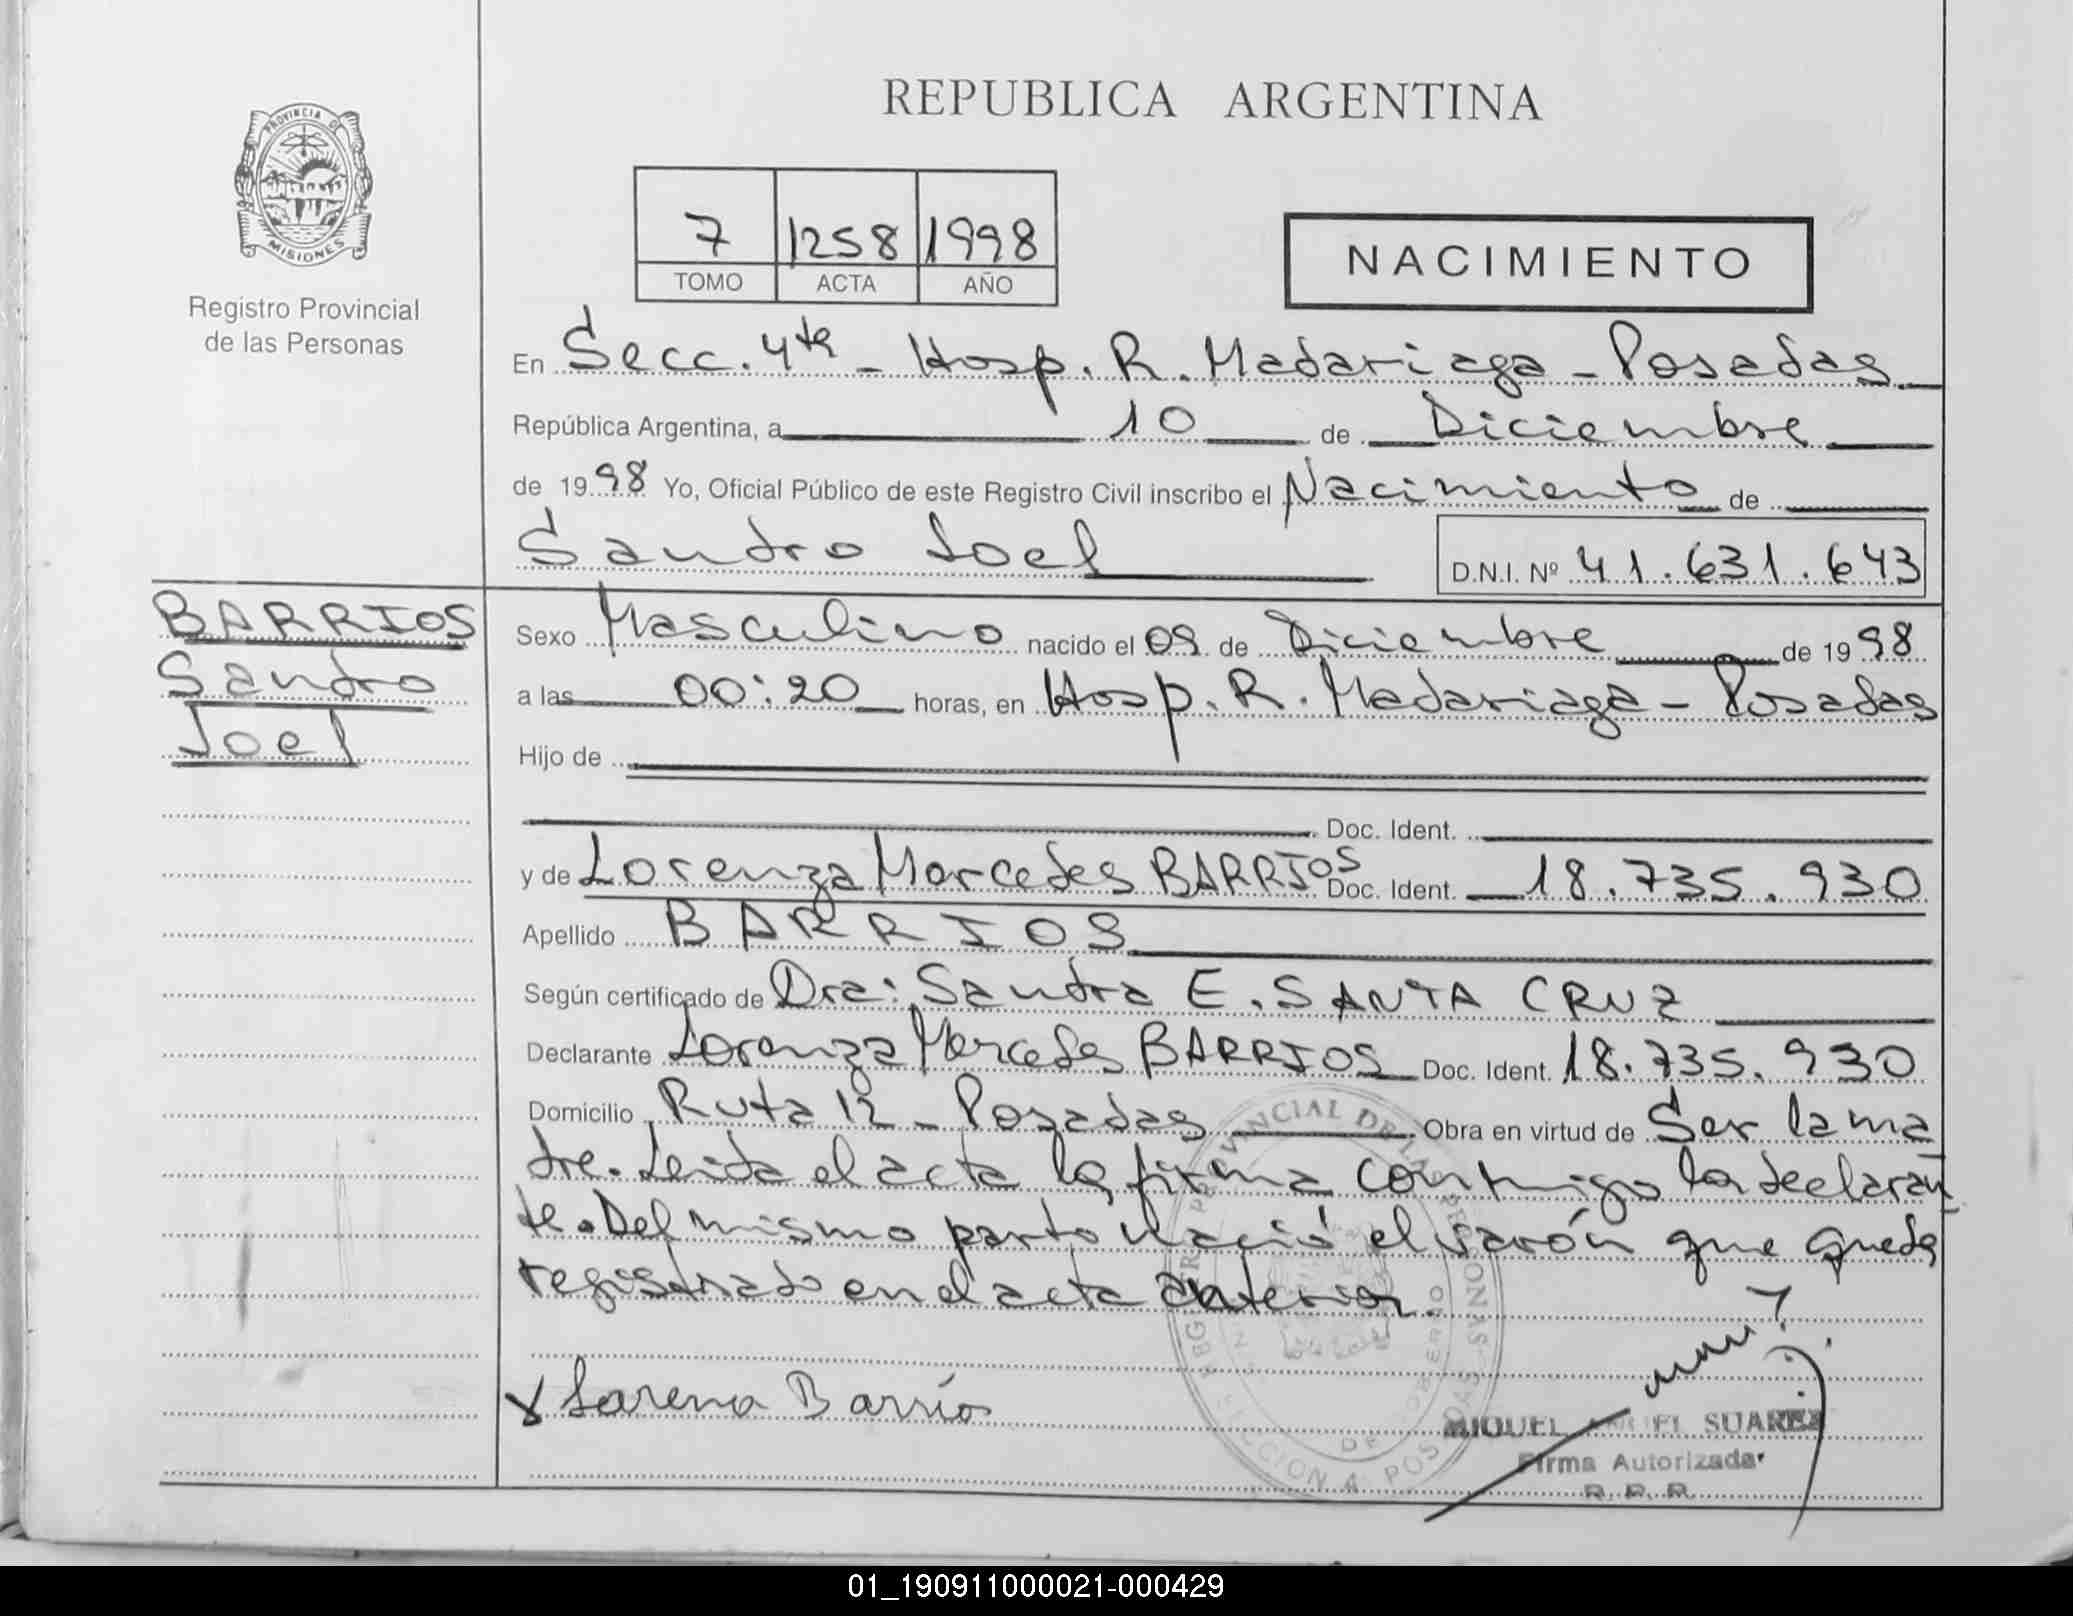 REPUBLICA ARGENTINA
PROVINCIA DE
MISIONES
Registro Provincial
de las Personas
7 1258 1998
TOMO ACTA AÑO
NACIMIENTO
En Secc. 4ta - Hosp. R. Madariaga - Posadas
República Argentina, a 10 de Diciembre
de 1998 Yo, Oficial Público de este Registro Civil inscribo el Nacimiento de
Sandro Joel D.N.I. Nº 41.631.643
BARRIOS
Sandro
Joel
Sexo Masculino nacido el 09 de Diciembre de 1998
a las 00:20 horas, en Hosp. R. Madariaga - Posadas
Hijo de
Doc. Ident.
y de Lorenza Mercedes BARRIOS Doc. Ident. 18.735.930
Apellido BARRIOS
Según certificado de Dra: Sandra E. SANTA CRUZ
Declarante Lorenza Mercedes BARRIOS Doc. Ident. 18.735.930
Domicilio Ruta 12 - Posadas Obra en virtud de Ser la ma
dre. Leida el acta la firma conmigo la declaran
te. Del mismo parto nació el varón que queda
registrado en el acta anterior.
x Lorenza Barrios
MIGUEL ANGEL SUAREZ
Firma Autorizada
R. P. P.
01_190911000021-000429